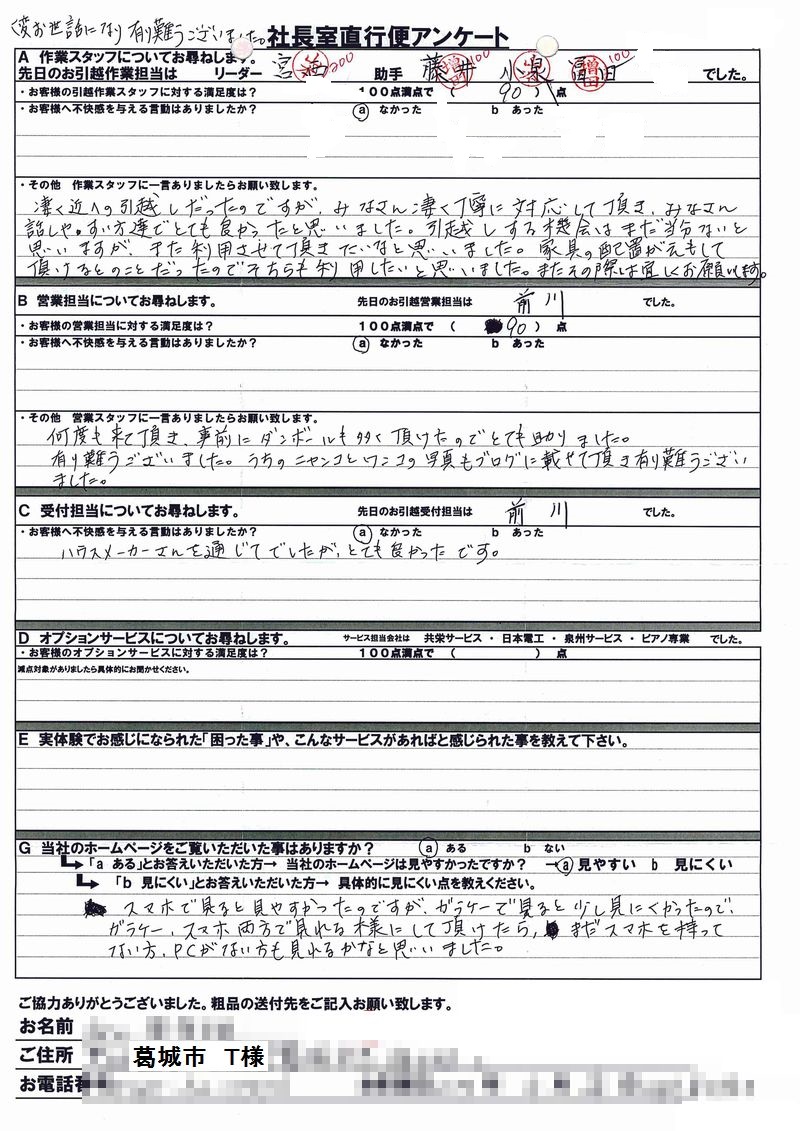 大変お世話になり有難うございました。
社長室直行便アンケート
A 作業スタッフについてお尋ねします。
先日のお引越作業担当は リーダー 宮 200 助手 藤井 100 小泉 冨田 100 でした。
・お客様の引越作業スタッフに対する満足度は? 100点満点で ( 90 ) 点
・お客様へ不快感を与える言動はありましたか? a なかった b あった
・その他 作業スタッフに一言ありましたらお願い致します。
凄く近への引越しだったのですが、みなさん凄く丁寧に対応して頂き、みなさん
話しやすい方達でとても良かったと思いました。引越しする機会はまだ当分ないと
思いますが、また利用させて頂きたいなと思いました。家具の配置がえもして
頂けるとのことだったのでそちらも利用したいと思いました。またその際は宜しくお願いします。
B 営業担当についてお尋ねします。 先日のお引越営業担当は 前川 でした。
・お客様の営業担当に対する満足度は? 100点満点で ( 90 ) 点
・お客様へ不快感を与える言動はありましたか? a なかった b あった
・その他 営業スタッフに一言ありましたらお願い致します。
何度も来て頂き、事前にダンボールも多く頂けたのでとても助りました。
有り難うございました。うちのニャンコとワンコの写真もブログに載せて頂き有り難うござい
ました。
C 受付担当についてお尋ねします。 先日のお引越受付担当は 前川 でした。
・お客様へ不快感を与える言動はありましたか? a なかった b あった
ハウスメーカーさんを通じてでしたが、とても良かったです。
D オプションサービスについてお尋ねします。 サービス担当会社は 共栄サービス ・ 日本電工 ・ 泉州サービス ・ ピアノ専業 でした。
・お客様のオプションサービスに対する満足度は? 100点満点で ( ) 点
減点対象がありましたら具体的にお聞かせください。
E 実体験でお感じになられた「困った事」や、こんなサービスがあればと感じられた事を教えて下さい。
G 当社のホームページをご覧いただいた事はありますか? a ある b ない
「a ある」とお答えいただいた方→ 当社のホームページは見やすかったですか? →a 見やすい b 見にくい
「b 見にくい」とお答えいただいた方→ 具体的に見にくい点を教えください。
スマホで見ると見やすかったのですが、ガラケーで見ると少し見にくかったので、
ガラケー、スマホ両方で見れる様にして頂けたら、まだスマホを持って
ない方、PCがない方も見れるかなと思いました。
ご協力ありがとうございました。粗品の送付先をご記入お願い致します。
お名前
ご住所 葛城市 T様
お電話番